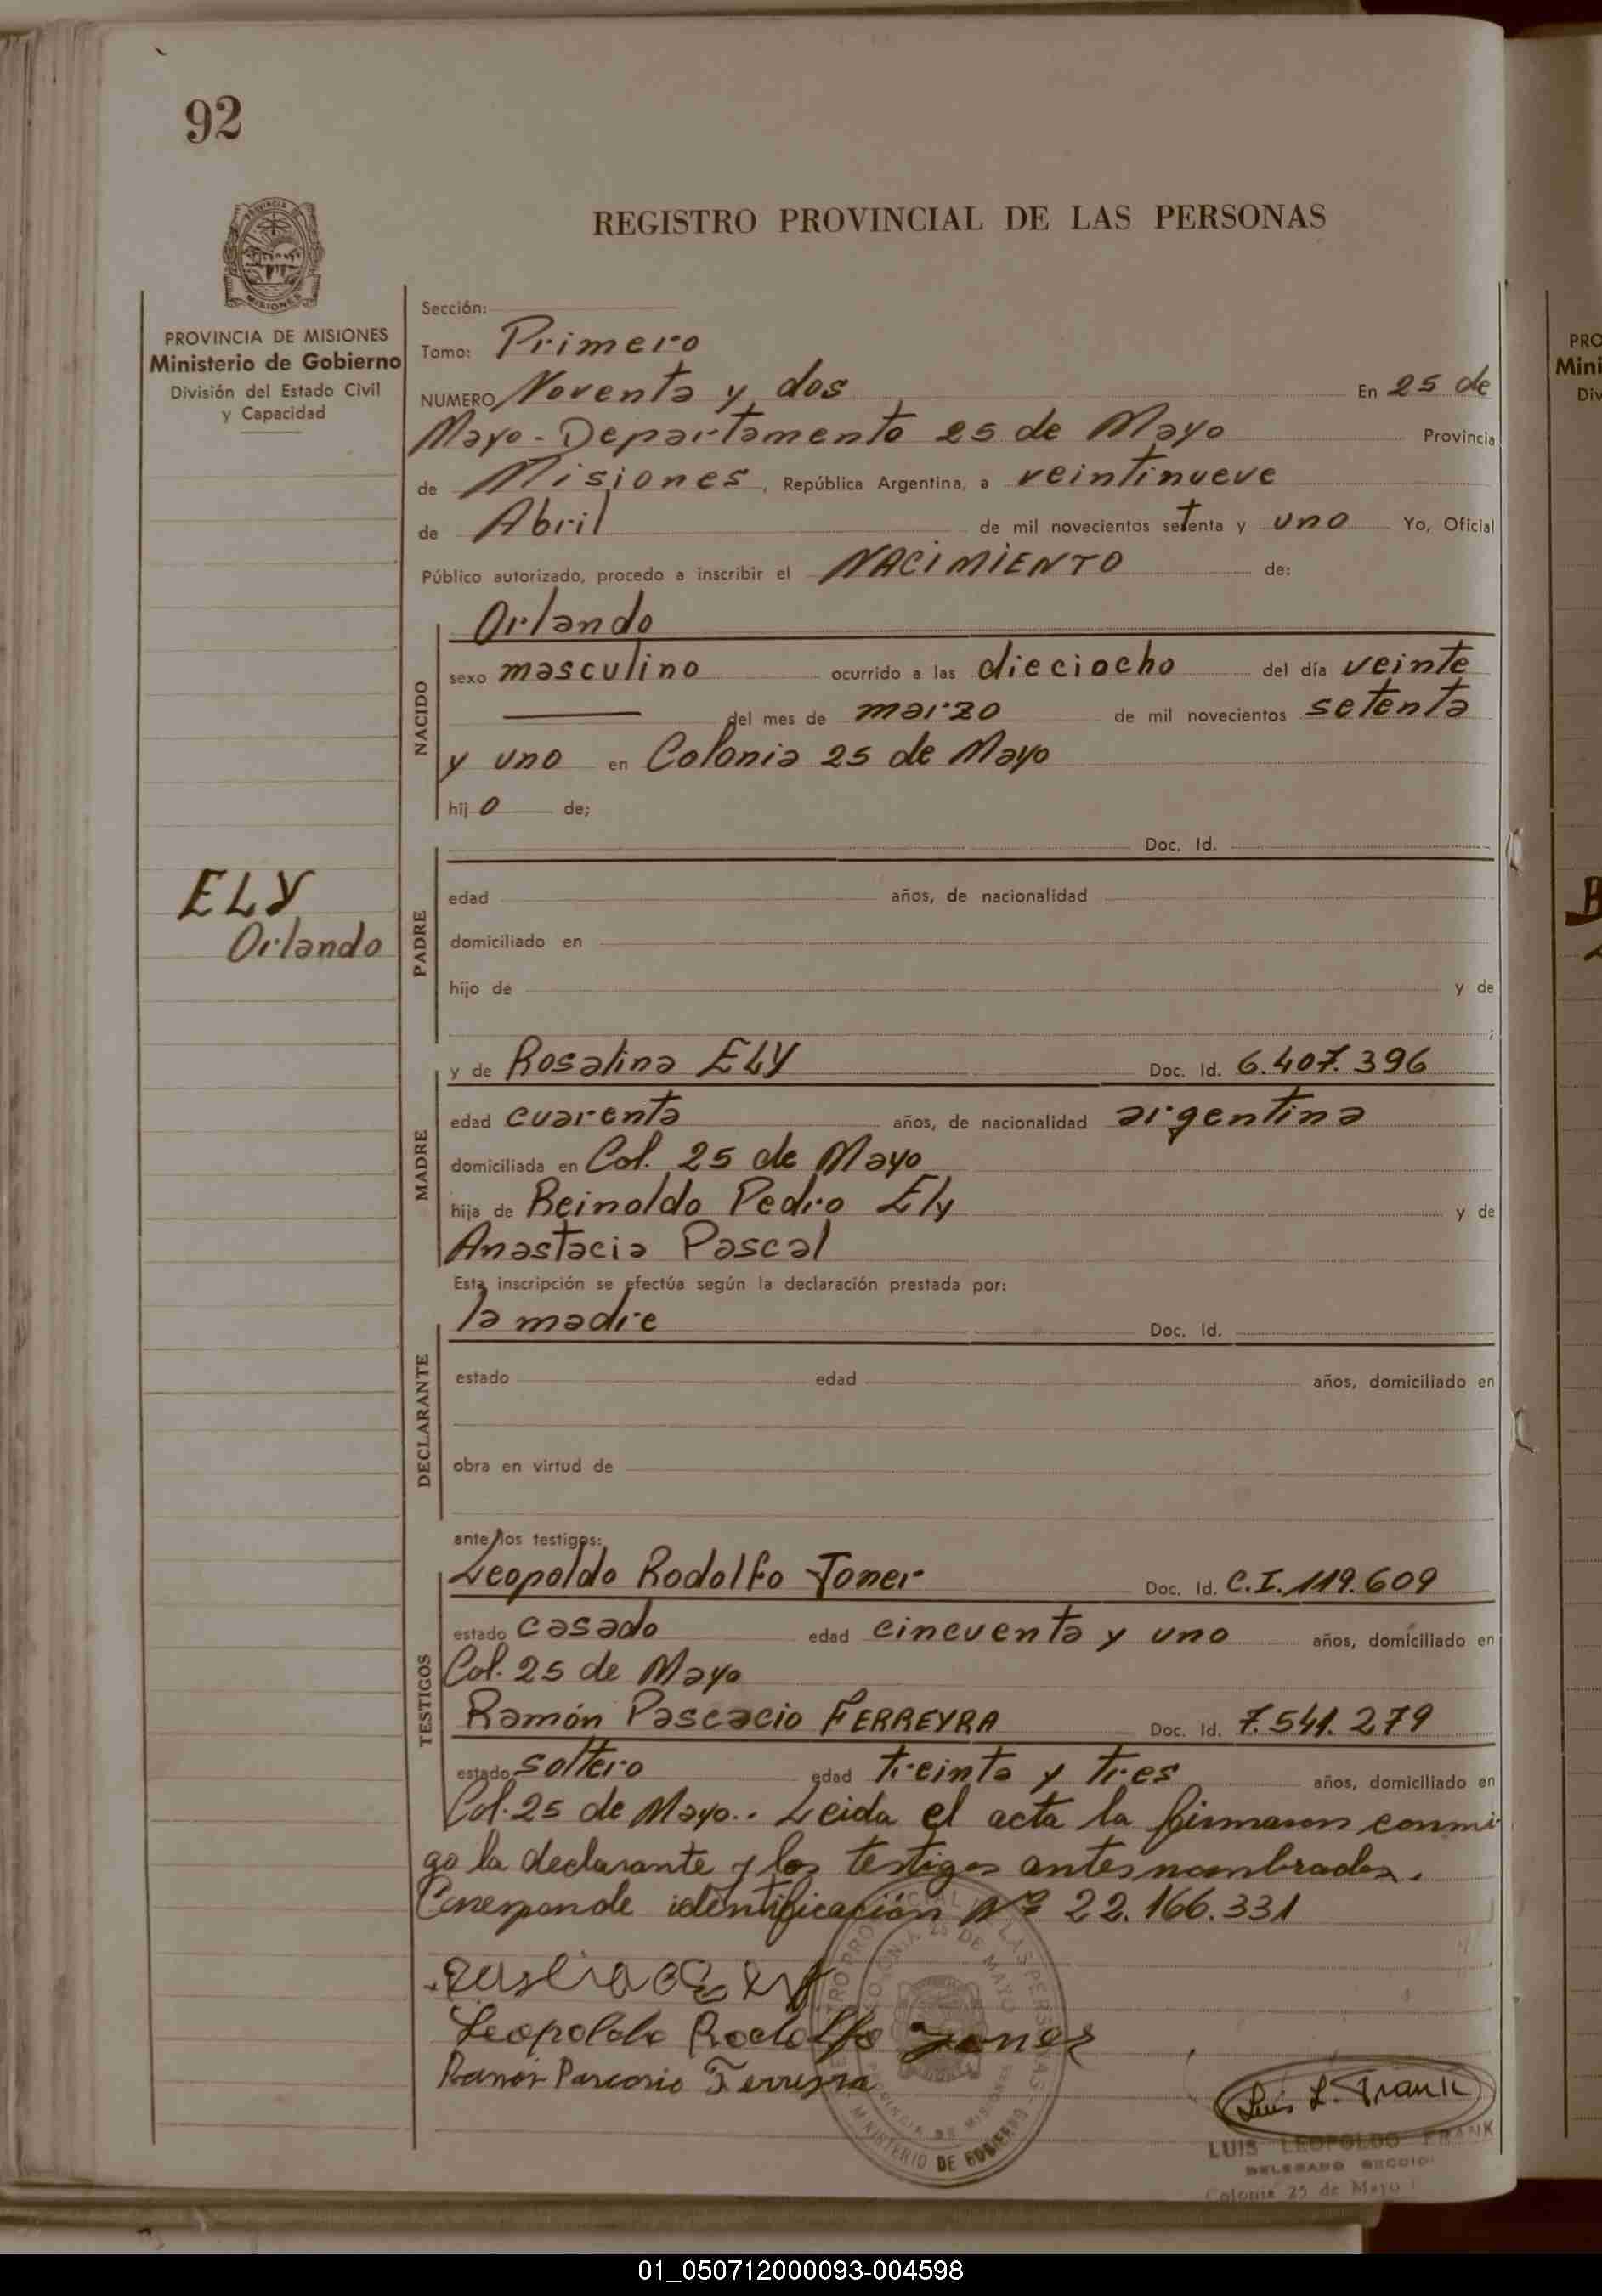 92
REGISTRO PROVINCIAL DE LAS PERSONAS
MISIONES
PROVINCIA DE MISIONES
Ministerio de Gobierno
División del Estado Civil
y Capacidad
Sección:
Tomo: Primero
NUMERO Noventa y dos En 25 de
Mayo - Departamento 25 de Mayo Provincia
de Misiones, República Argentina, a veintinueve
de Abril de mil novecientos setenta y uno Yo, Oficial
Público autorizado, procedo a inscribir el NACIMIENTO de:
NACIDO
Orlando
sexo masculino ocurrido a las dieciocho del día veinte
del mes de marzo de mil novecientos setenta
y uno en Colonia 25 de Mayo
hijo de;
ELY
Orlando
PADRE
Doc. Id.
edad años, de nacionalidad
domiciliado en
hijo de y de
;
MADRE
y de Rosalina ELY Doc. Id. 6.407.396
edad cuarenta años, de nacionalidad argentina
domiciliada en Col. 25 de Mayo
hija de Reinoldo Pedro Ely y de
Anastacia Pascal
Esta inscripción se efectúa según la declaración prestada por:
DECLARANTE
la madre Doc. Id.
estado edad años, domiciliado en
obra en virtud de
ante los testigos:
TESTIGOS
Leopoldo Rodolfo Joner Doc. Id. C.I. 119.609
estado casado edad cincuenta y uno años, domiciliado en
Col. 25 de Mayo
Ramón Pascacio FERREYRA Doc. Id. 7.541.279
estado soltero edad treinta y tres años, domiciliado en
Col. 25 de Mayo.. Leida el acta la firmaron conmi
go la declarante y los testigos antes nombrados.
Corresponde identificación Nº 22.166.331
Leopoldo Rodolfo Joner
Ramón Pascacio Ferreyra
Luis L. Frank
LUIS LEOPOLDO FRANK
Colonia 25 de Mayo
MINISTERIO DE GOBIERNO
PRO
Mini
Div
01_050712000093-004598